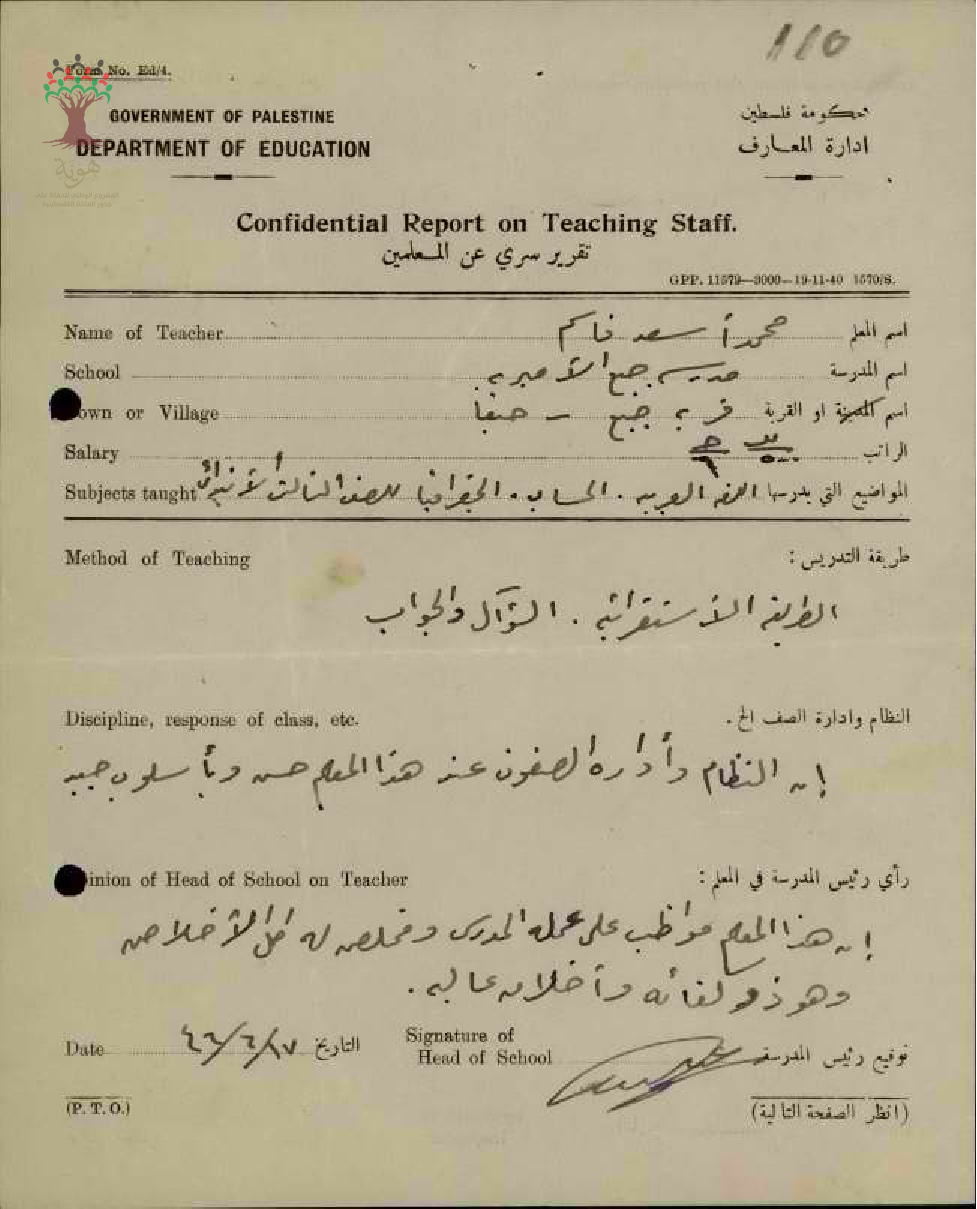 110
Form No. Ed/4.
GOVERNMENT OF PALESTINE
حكومة فلسطين
DEPARTMENT OF EDUCATION
ادارة المعارف
هوية
Confidential Report on Teaching Staff.
تقرير سري عن المعلمين
GPP. 11579—3000—19-11-40 1570/S.
Name of Teacher محمد أسعد قاسم اسم المعلم
School مدرسة جبع الأميرية اسم المدرسة
Town or Village قرية جبع - حيفا اسم المدينة او القرية
Salary الراتب
Subjects taught اللغة العربية . الحساب . الجغرافيا للصف الثالث الابتدائي المواضيع التي يدرسها
Method of Teaching طريقة التدريس :
الطريقة الاستقرائية . السؤال والجواب
Discipline, response of class, etc. النظام وادارة الصف الخ .
إن النظام وأداره الصفوف عند هذا المعلم حسن وبأسلوب جيد
Opinion of Head of School on Teacher رأي رئيس المدرسة في المعلم :
إن هذا المعلم مواظب على عمله المدرسي ومخلص له كل الأخلاص
وهو ذو كفائه وأخلاق عاليه .
Date التاريخ Signature of
Head of School توقيع رئيس المدرسة
(P. T. O.) (انظر الصفحة التالية)